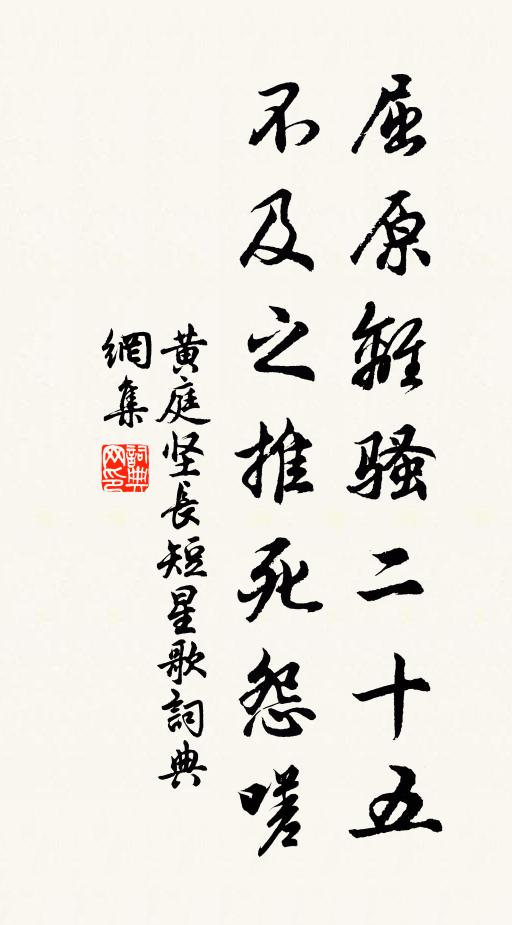 屈原離騷二十五
不及之推死怨嗟
黄庭坚長短星歌詞典
網集
詞典网印